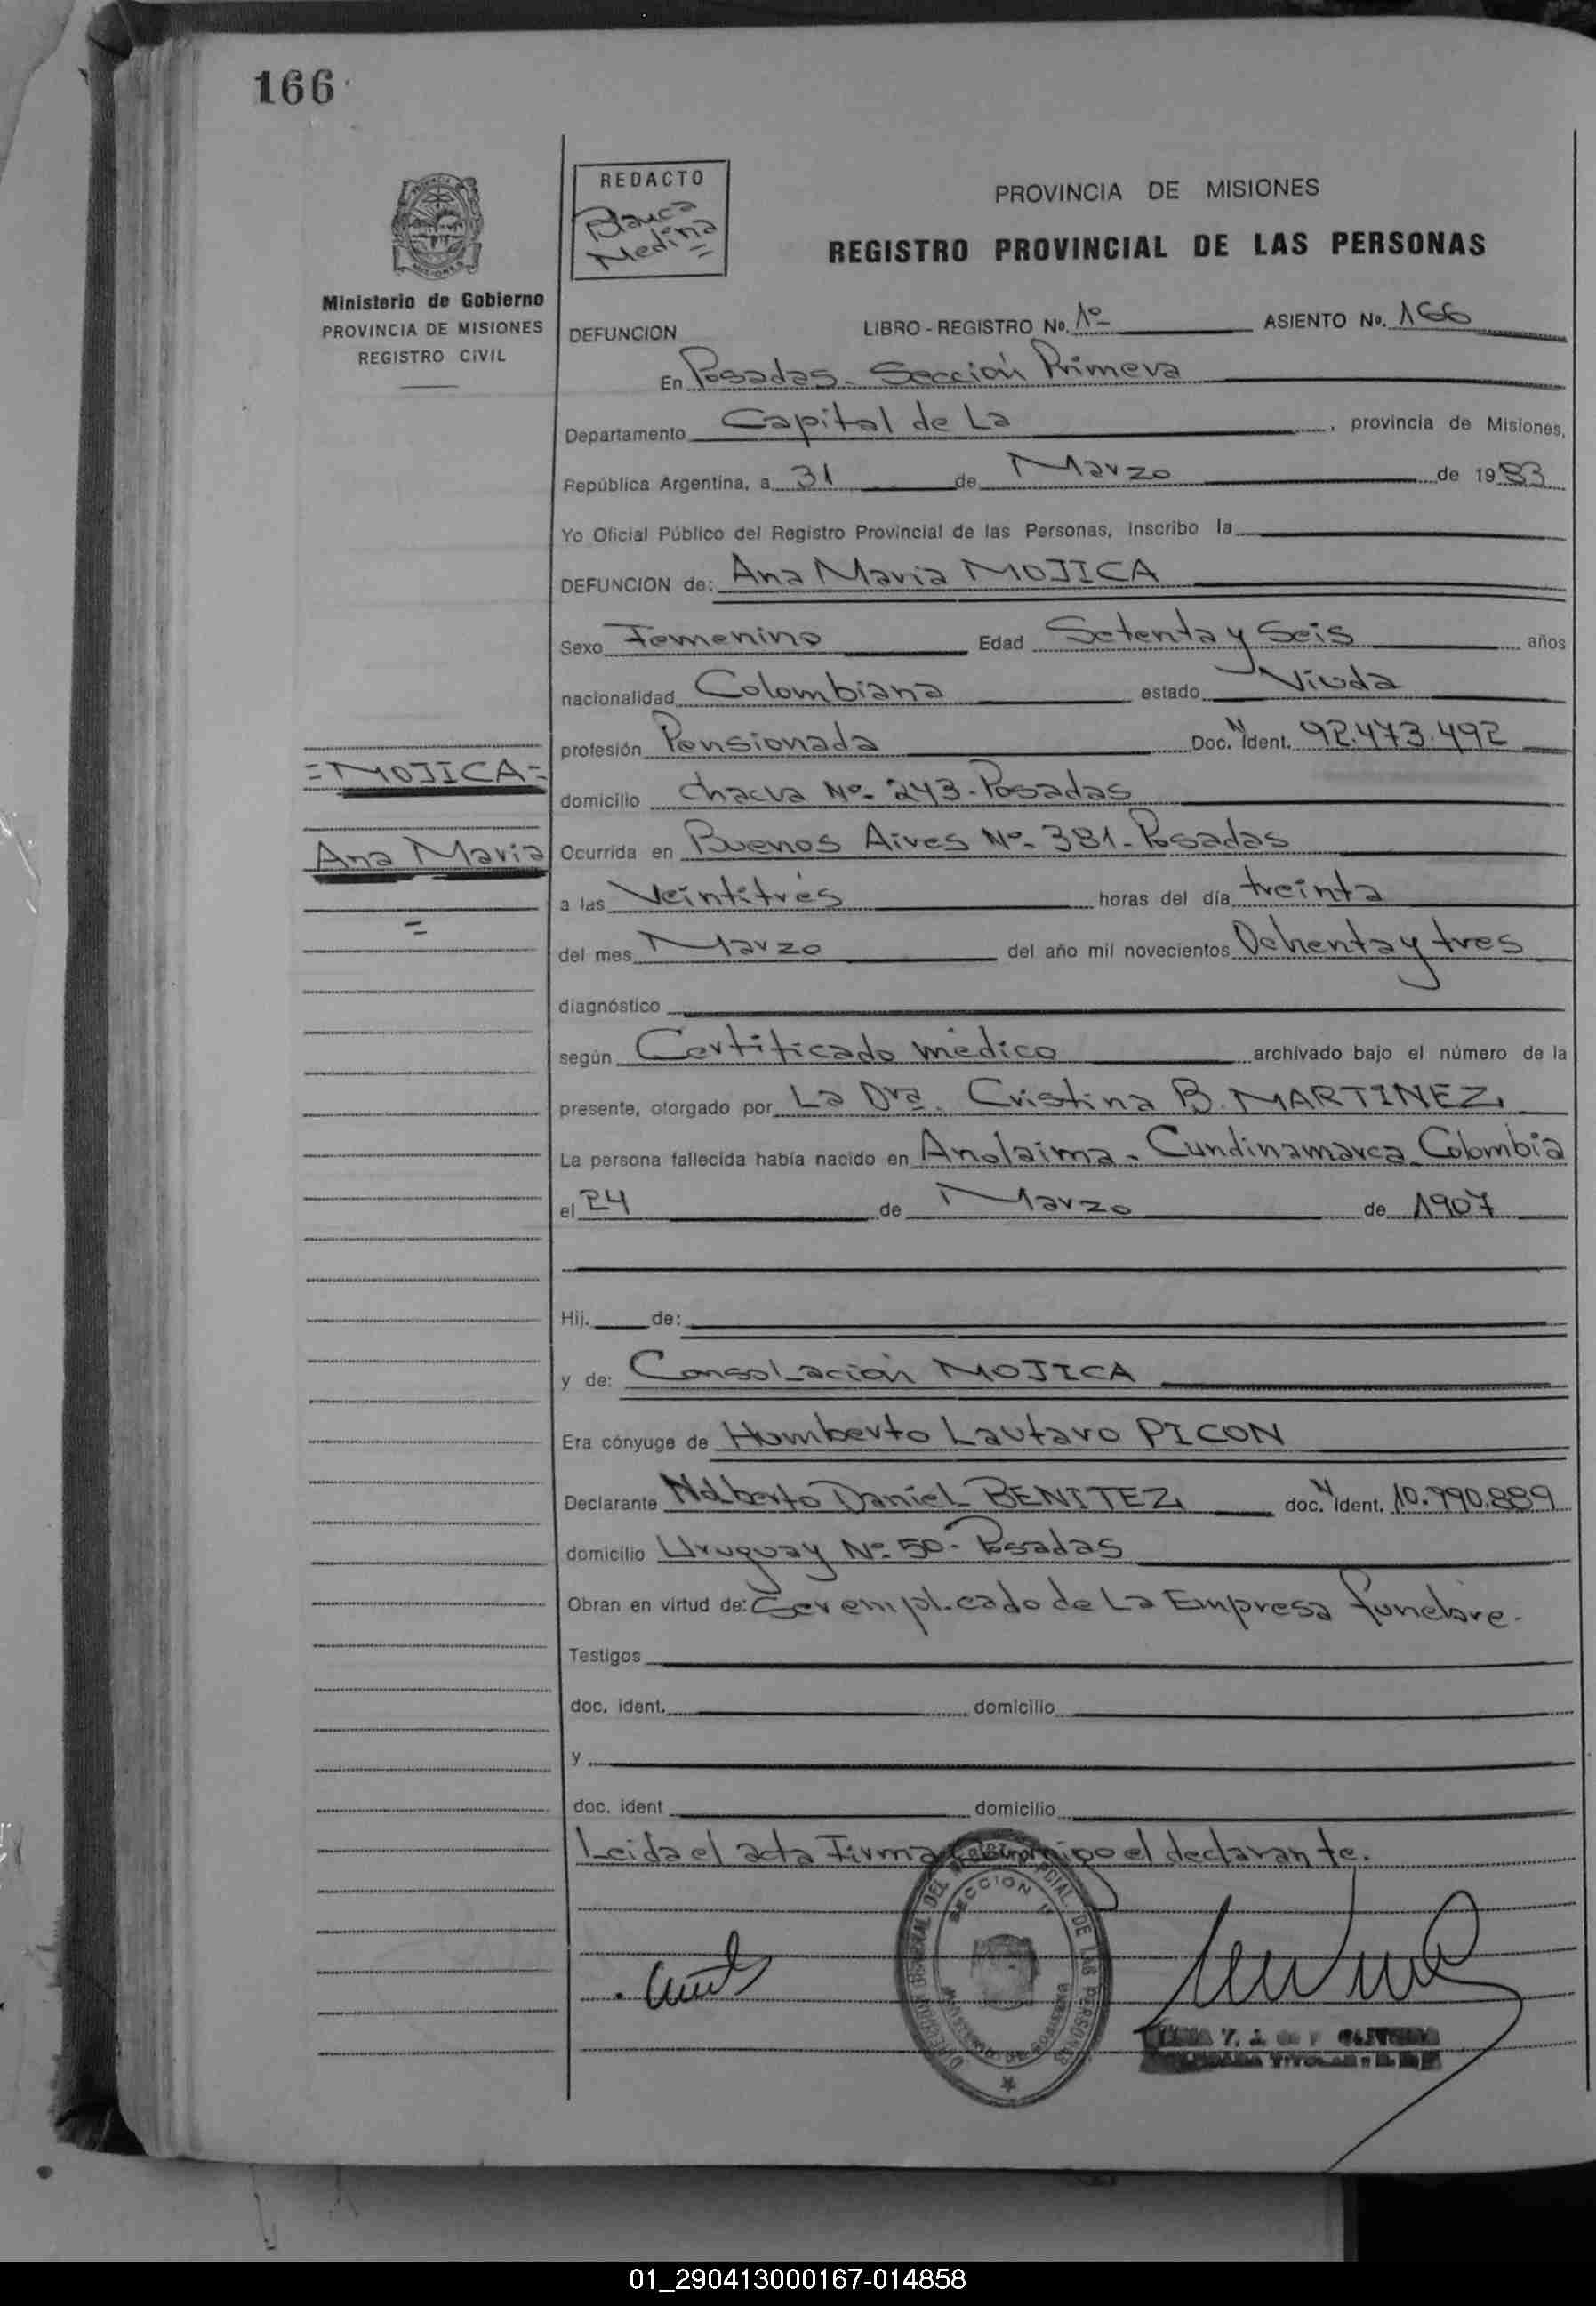 166
REDACTO
Blanca
Medina
PROVINCIA DE MISIONES
REGISTRO PROVINCIAL DE LAS PERSONAS
Ministerio de Gobierno
PROVINCIA DE MISIONES
REGISTRO CIVIL
DEFUNCION LIBRO - REGISTRO No. 1º ASIENTO No. 166
En Posadas - Sección Primera
Departamento Capital de La , provincia de Misiones,
República Argentina, a 31 de Marzo de 1983
Yo Oficial Público del Registro Provincial de las Personas, inscribo la
DEFUNCION de: Ana Maria MOJICA
Sexo Femenino Edad Setenta y Seis años
nacionalidad Colombiana estado Viuda
profesión Pensionada Doc. N Ident. 92.473.492
=MOJICA=
domicilio chacra Nº- 243- Posadas
Ana Maria
Ocurrida en Buenos Aires Nº- 381- Posadas
a las Veintitrés horas del día treinta
=
del mes Marzo del año mil novecientos Ochenta y tres
diagnóstico
según Certificado médico archivado bajo el número de la
presente, otorgado por La Dra. Cristina B. MARTINEZ,
La persona fallecida había nacido en Anolaima - Cundinamarca - Colombia
el 24 de Marzo de 1907
Hij. de:
y de: Consolación MOJICA
Era cónyuge de Humberto Lautaro PICON
Declarante Norberto Daniel BENITEZ, doc. N Ident. 10.990.889
domicilio Uruguay Nº- 50- Posadas
Obran en virtud de: Ser empleado de La Empresa funebre.
Testigos
doc. ident. domicilio
y
doc. ident domicilio
Leida el acta Firma conmigo el declarante.
SECCION 1ª
DE LAS PERSONAS